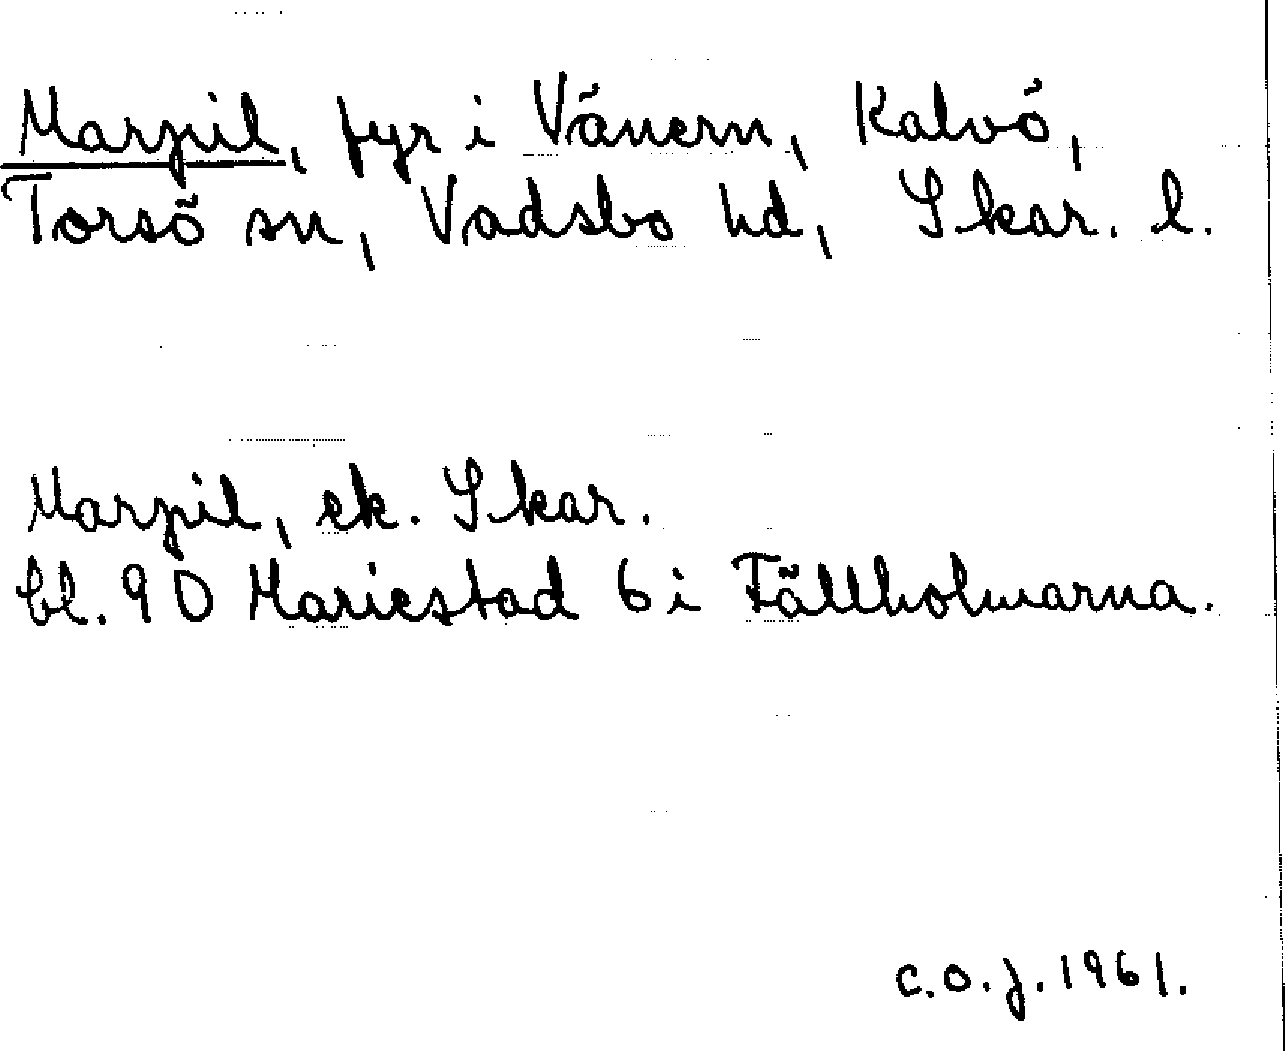 Marpil, fyr i Vänern, Kalvö,
Torsö sn, Vadsbo hd, Skar. l.
Marpil, ek. Skar.
bl. 90 Mariestad 6 i Fällholmarna.
C.O.J. 1961.